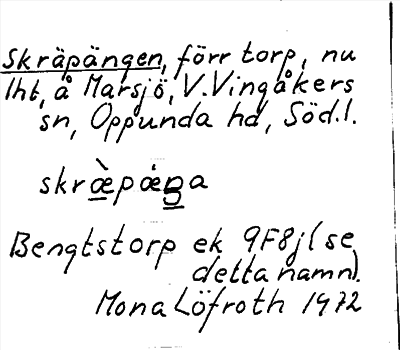 Skräpängen, förr torp, nu
lht, å Marsjö, V. Vingåkers
sn, Oppunda hd, Söd.l.
skræ̀pǽŋa
Bengtstorp ek 9F8j (se
detta namn).
Mona Löfroth 1972